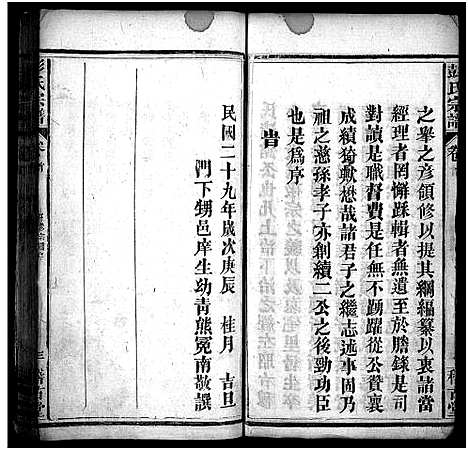 彭氏宗譜
之舉之彥領修以提其綱編纂以衷諸當
經理者罔懈踩輯者無遺至於謄錄是司
對讀是職督費是任無不踴躍從公賛襄
成績猗歟懋哉諸君子之繼志述事固乃
祖之慈孫孝子亦創續二公之後勁功臣
也是爲序
旹
民國二十九年歲次庚辰 桂月 吉旦
門下甥邑庠生幼青熊冕南敬譔
彭氏宗譜